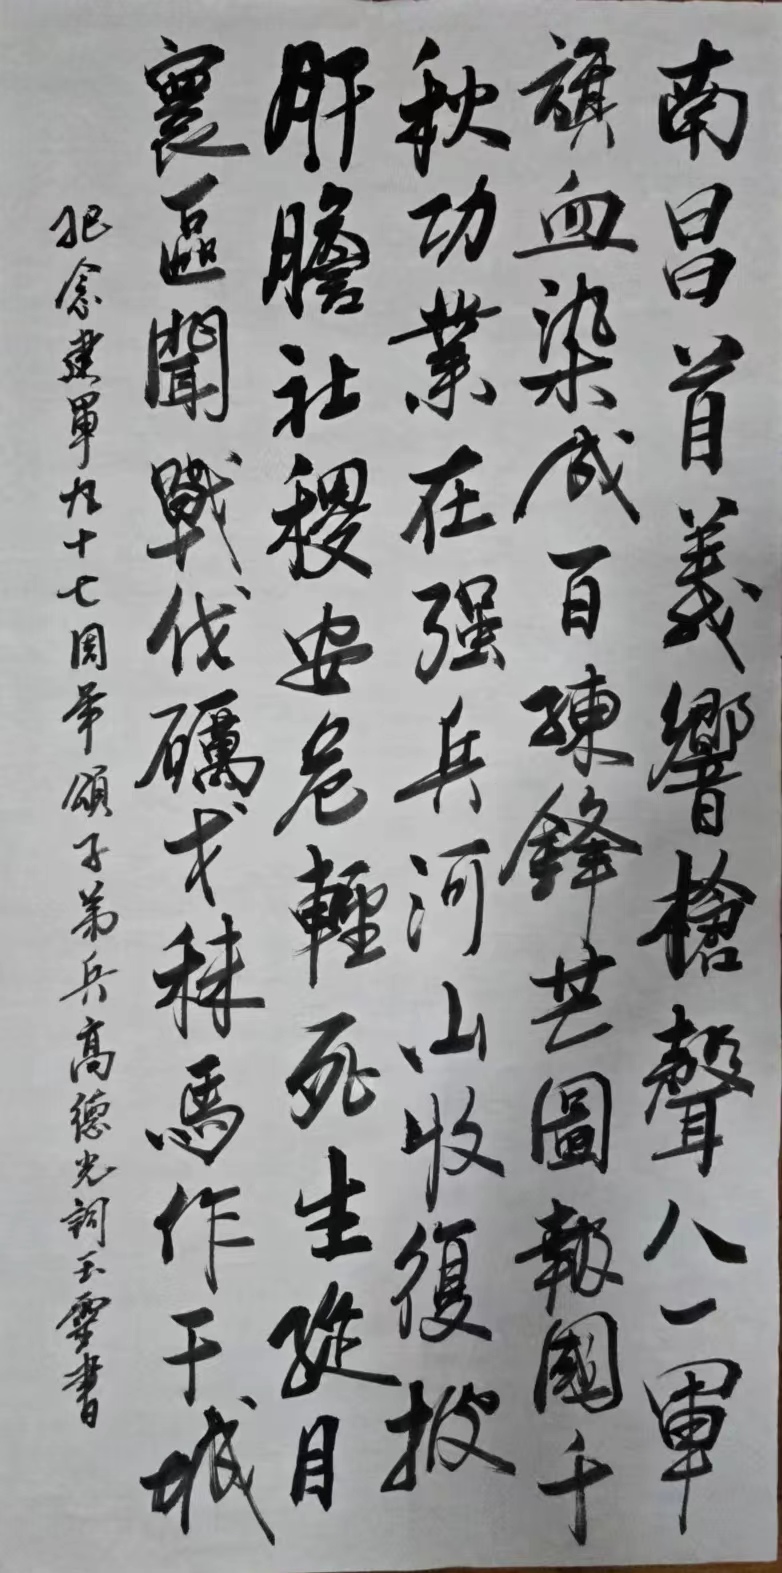 南昌首義響槍聲八一軍
旗血染成百鍊鋒芒圖報國千
秋功業在强兵河山收復披
肝膽社稷安危輕死生縱目
寰區聞戰伐礪戈秣馬作干城
紀念建軍九十七周年頌子弟兵高德光詞玉靈書